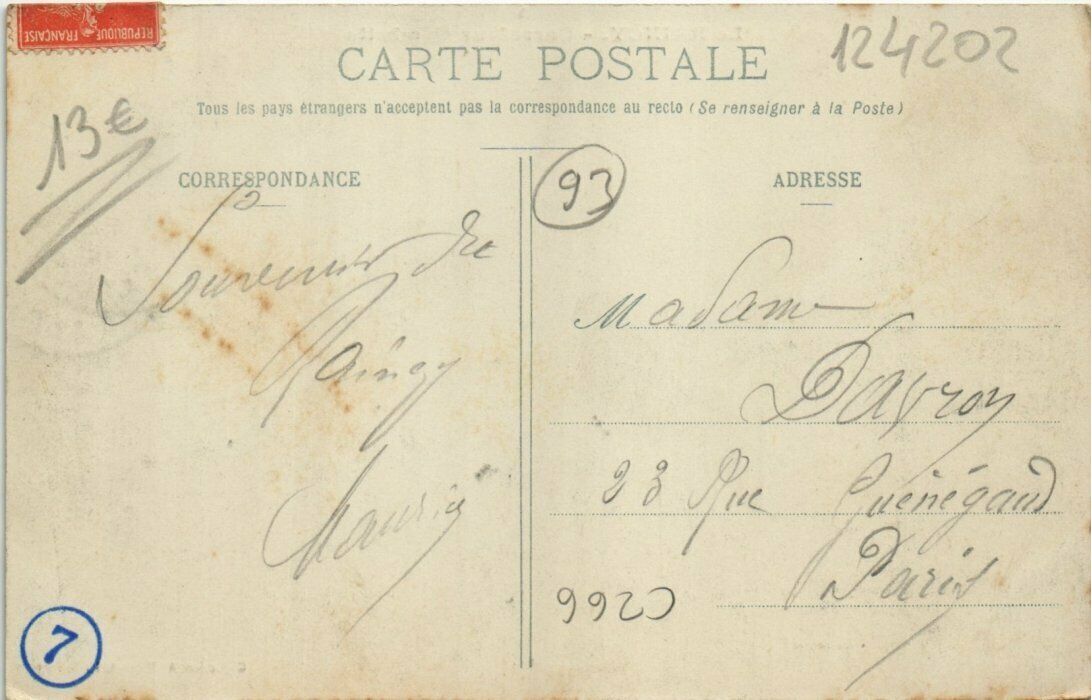 RÉPUBLIQUE FRANÇAISE
124202
CARTE POSTALE
Tous les pays étrangers n'acceptent pas la correspondance au recto (Se renseigner à la Poste)
13€
CORRESPONDANCE
93
ADRESSE
Souvenir du
Raincy
Maurice
Madame
Davroy
23 Rue Guénégaud
Paris
C266
7